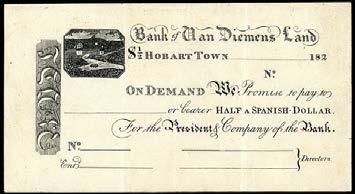 Bank of Van Diemens Land
HOBART TOWN 182
No.
ON DEMAND We Promise to pay to
or bearer HALF A SPANISH-DOLLAR.
For the President & Company of the Bank.
No.
Entd.
Directors.